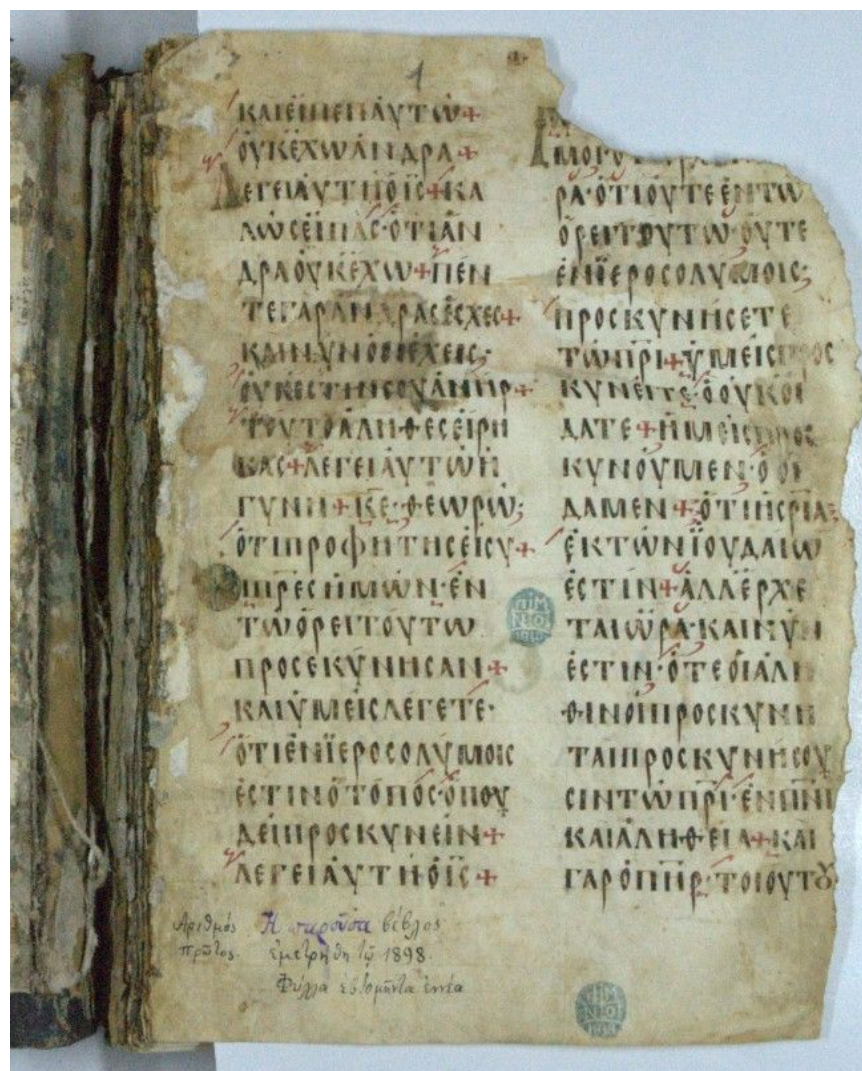 1
ΚΑΙΕΙΠΕΝΑΥΤΩ+
ΟΥΚΕΧΩΑΝΔΡΑ+
ΛΕΓΕΙΑΥΤΗΟΙΣ+ΚΑ
ΛΩΣΕΙΠΑΣ·ΟΤΙΑΝ
ΔΡΑΟΥΚΕΧΩ+ΠΕΝ
ΤΕΓΑΡΑΝΔΡΑΣΕΣΧΕΣ+
ΚΑΙΝΥΝΟΝΕΧΕΙΣ·
ΟΥΚΕΣΤΙΝΣΟΥΑΝΗΡ+
ΤΟΥΤΟΑΛΗΘΕΣΕΙΡΗ
ΚΑΣ+ΛΕΓΕΙΑΥΤΩΗ
ΓΥΝΗ+ΚΕ·ΘΕΩΡΩ
ΟΤΙΠΡΟΦΗΤΗΣΕΙΣΥ+
ΠΡΕΣΗΜΩΝ·ΕΝ
ΤΩΟΡΕΙΤΟΥΤΩ
ΠΡΟΣΕΚΥΝΗΣΑΝ+
ΚΑΙΥΜΕΙΣΛΕΓΕΤΕ·
ΟΤΙΕΝΙΕΡΟΣΟΛΥΜΟΙΣ
ΕΣΤΙΝΟΤΟΠΟΣ·ΟΠΟΥ
ΔΕΙΠΡΟΣΚΥΝΕΙΝ+
ΛΕΓΕΙΑΥΤΗΟΙΣ+
ΡΑ·ΟΤΙΟΥΤΕΕΝΤΩ
ΟΡΕΙΤΟΥΤΩ·ΟΥΤΕ
ΕΝΙΕΡΟΣΟΛΥΜΟΙΣ
ΠΡΟΣΚΥΝΗΣΕΤΕ
ΤΩΠΡΙ+ΥΜΕΙΣΠΡΟΣ
ΚΥΝΕΙΤΕ·ΟΟΥΚΟΙ
ΔΑΤΕ+ΗΜΕΙΣΠΡΟΣ
ΚΥΝΟΥΜΕΝ·ΟΟΙ
ΔΑΜΕΝ+ΟΤΙΗΣΡΙΑ
ΕΚΤΩΝΙΟΥΔΑΙΩ
ΕΣΤΙΝ+ΑΛΛΕΡΧΕ
ΤΑΙΩΡΑ·ΚΑΙΝΥΝ
ΕΣΤΙΝ·ΟΤΕΟΙΑΛΗ
ΘΙΝΟΙΠΡΟΣΚΥΝΗ
ΤΑΙΠΡΟΣΚΥΝΗΣΟΥ
ΣΙΝΤΩΠΡΙ·ΕΝΠΝΙ
ΚΑΙΑΛΗΘΕΙΑ+ΚΑΙ
ΓΑΡΟΠΗΡ·ΤΟΙΟΥΤΟΥ
Ἀριθμός Ἡ παροῦσα βίβλος
πρῶτος. ἐμετρήθη τῷ 1898.
Φύλλα ἑβδομῆντα ἐννέα